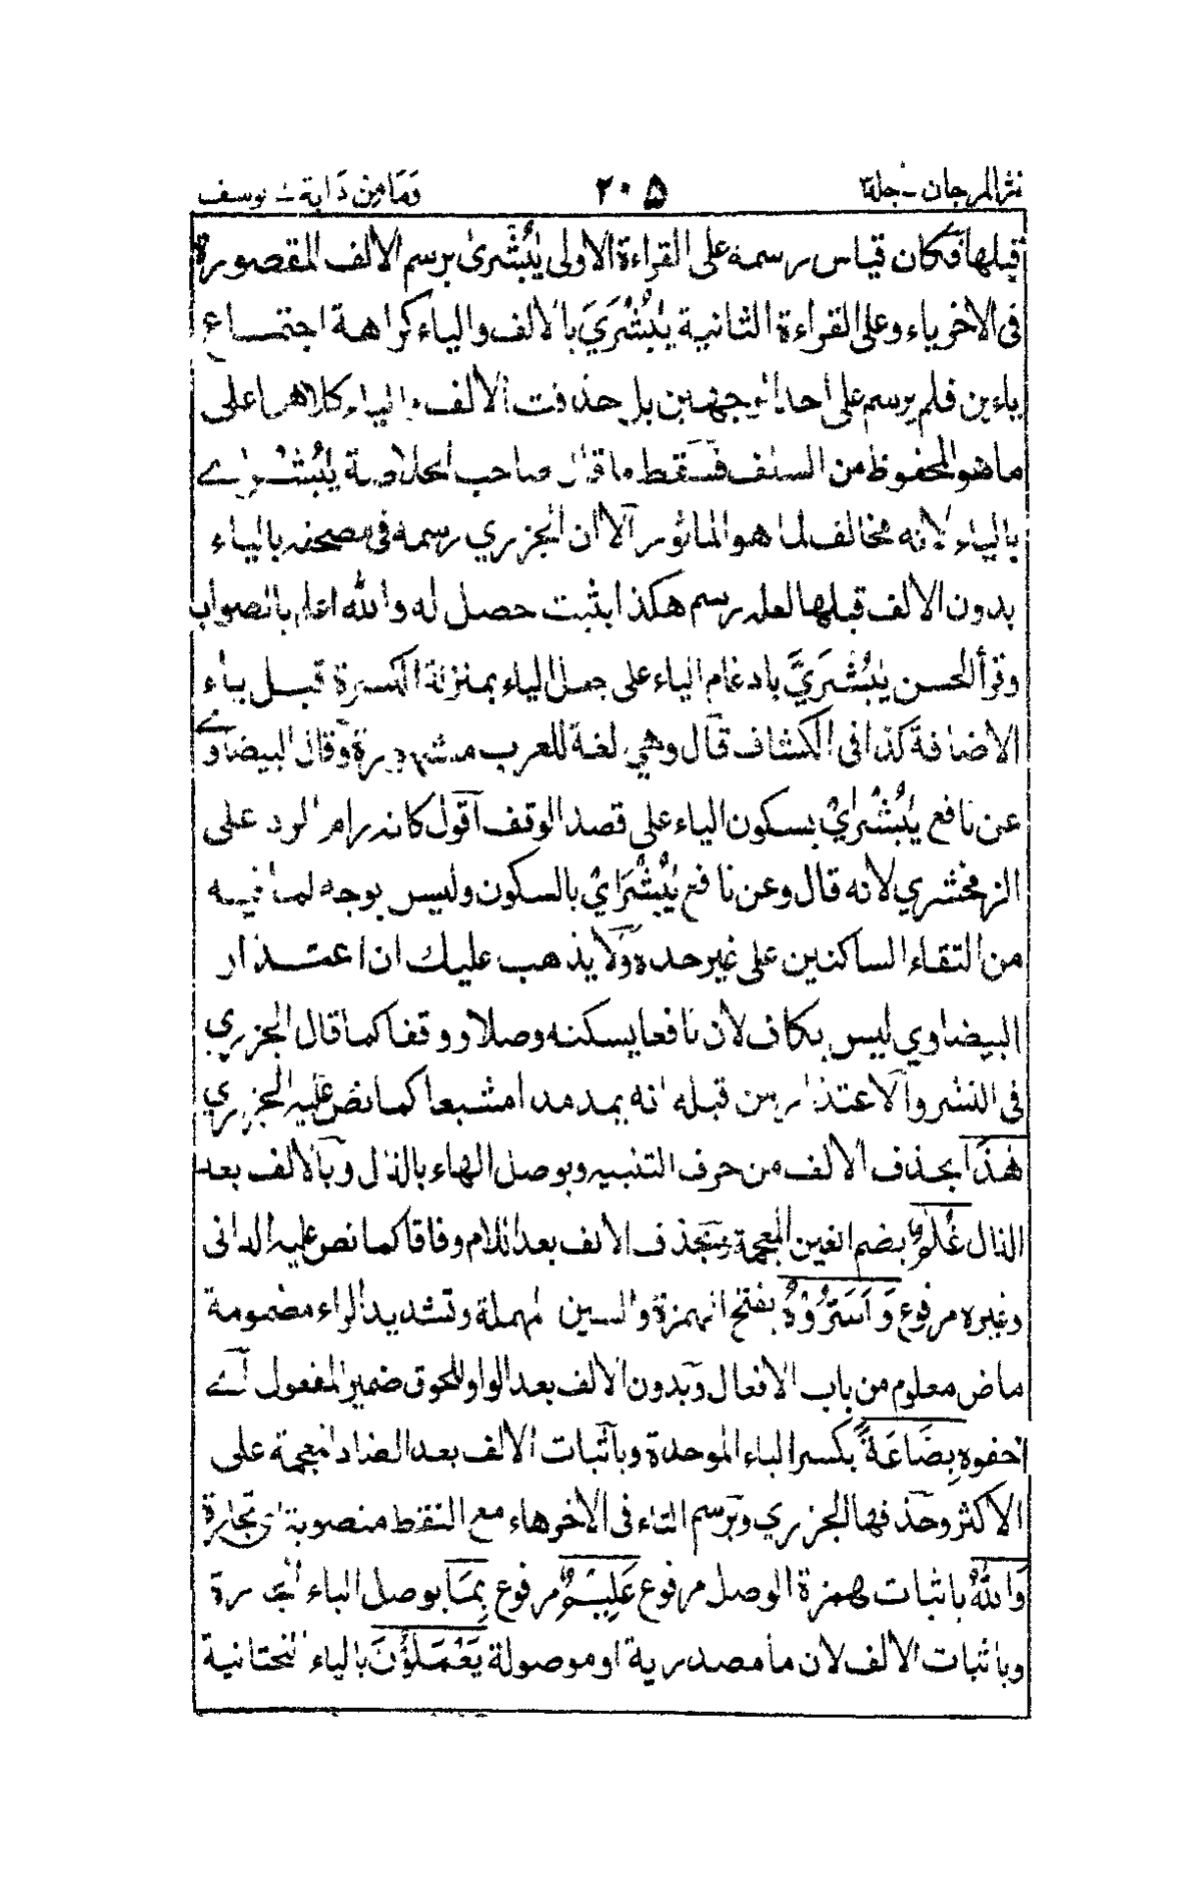 نثر المرجان - جلد ٣
٢٠٥
وَمَا مِن دَابة - يوسف
قبلها فكان قياس رسمه على القراءة الاولى يٰبُشْرىٰ برسم الالف المقصورة
فى الاخر ياء وعلى القراءة الثانية يٰبُشْرَيَ بالالف والياء كراهة اجتماع
ياءين فلم يرسم على احد الوجهين بل حذفت الالف والياء كلاهما على
ما هو المحفوظ من السلف فسقط ما قال صاحب الخلاصة يٰبُشْراى
بالياء لانه مخالف لما هو الماثور الا ان الجزري رسمه فى مصحفه بالياء
بدون الالف قبلها لعله رسم هكذا بثبت حصل له والله اعلم بالصواب
وقرأ الحسن يٰبُشْرَيَّ بادغام الياء على جعل الياء بمنزلة الكسرة قبل ياء
الاضافة كذا فى الكشاف قال وهي لغة للعرب مشهورة وقال البيضاوى
عن نافع يٰبُشْرٰيْ بسكون الياء على قصد الوقف اقول كانه رام الرد على
الزمخشري لانه قال وعن نافع يٰبُشْرَايْ بالسكون وليس بوجه لما فيه
من التقاء الساكنين على غير حده ولا يذهب عليك ان اعتذار
البيضاوي ليس بكاف لان نافعا يسكنه وصلا ووقفا كما قال الجزري
فى النشر والاعتذار من قبله انه يمد مدا مشبعا كما نص عليه الجزري
هٰذَا بحذف الالف من حرف التنبيه وبوصل الهاء بالذال وبالالف بعد
الذال غُلٰمٌ بضم الغين المعجمة وبحذف الالف بعد اللام وفاقا كما نص عليه الدانى
وغيره مرفوع وَاَسَرُّوْهُ بفتح الهمزة والسين المهملة وتشديد الراء مضمومة
ماض معلوم من باب الافعال وبدون الالف بعد الواو للحوق ضمير المفعول اى
اخفوه بِضَاعَةً بكسر الباء الموحدة وباثبات الالف بعد الضاد المعجمة على
الاكثر وحذفها الجزري وبرسم التاء فى الاخر هاء مع النقط منصوبة اى تجارة
وَاللهُ باثبات همزة الوصل مرفوع عَلِيْمٌ مرفوع بِمَا بوصل الباء الجارة
وباثبات الالف لان ما مصدرية او موصولة يَعْمَلُوْنَ بالياء التحتانية